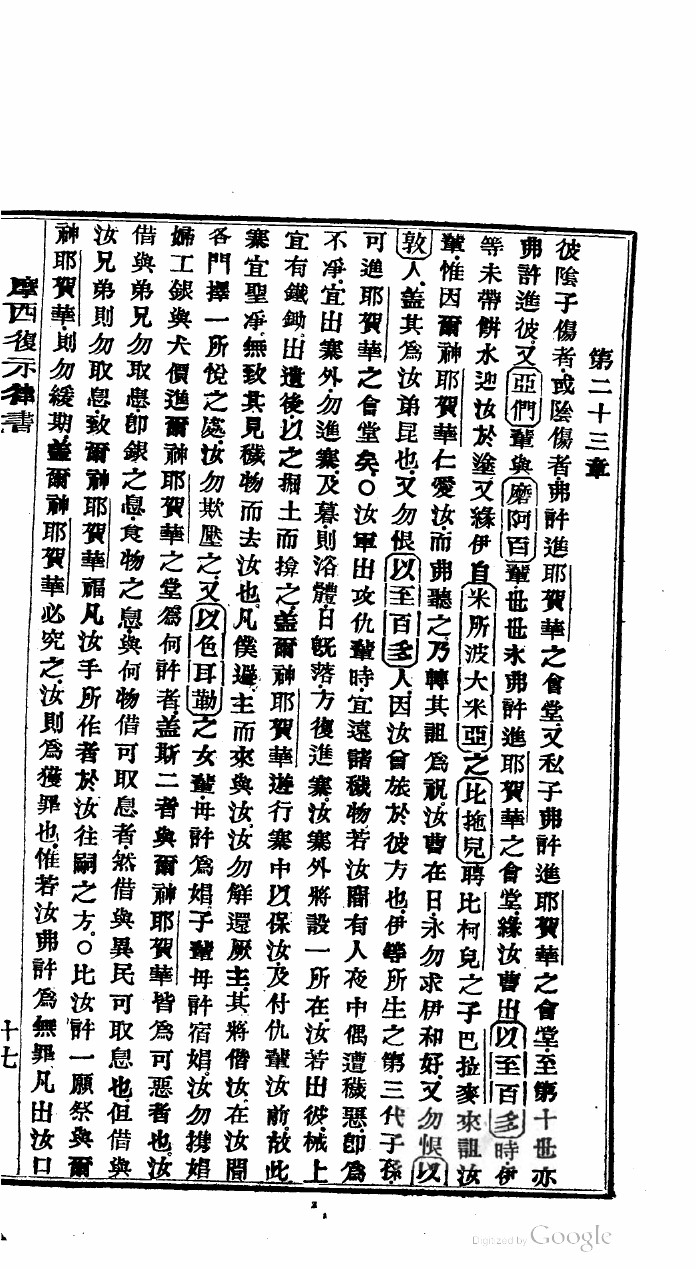 第二十三章
彼陰子傷者、或陰傷者、弗許進耶賀華之會堂、又私子弗許進耶賀華之會堂、至第十世亦
弗許進彼、又亞們輩與磨阿百輩、世世永弗許進耶賀華之會堂、緣汝曹出以至百多時、伊
等未帶餅水迎汝於塗、又緣伊自米所波大米亞之比拖兒、聘比柯兒之子巴拉麥來詛汝
輩、惟因爾神耶賀華仁愛汝、而弗聽之、乃轉其詛為祝、汝曹在日、永勿求伊和好、又勿恨以
敦人、蓋其為汝弟昆也、又勿恨以至百多人、因汝曾旅於彼方也、伊等所生之第三代子孫、
可進耶賀華之會堂矣、○汝軍出攻仇輩時、宜遠諸穢物、若汝間有人夜中偶遭穢惡、卽為
不凈、宜出寨外、勿進寨、及暮則浴體、日旣落方復進寨、汝寨外將設一所在、汝若出彼、械上
宜有鐵鋤、出遺後、以之掘土而揜之、蓋爾神耶賀華遊行寨中以保汝、及付仇輩汝前、故此
寨宜聖凈、無致其見穢物而去汝也、凡僕過主而來與汝、汝勿解還厥主、其將偕汝在汝間
各門擇一所悅之處、汝勿欺壓之、又以色耳勒之女輩、毋許為娼、子輩毋許宿娼、汝勿攜娼
婦工銀與犬價進爾神耶賀華之堂為何許者、蓋斯二者與爾神耶賀華皆為可惡者也、汝
借與弟兄勿取息、卽銀之息、食物之息、與何物借可取息者、然借與異民可取息也、但借與
汝兄弟則勿取息、致爾神耶賀華福凡汝手所作者於汝往嗣之方、○比汝許一願祭與爾
神耶賀華、則勿緩期、蓋爾神耶賀華必究之、汝則為獲罪也、惟若汝弗許為無罪、凡出汝口
摩西復示律書
十七
Digitized by Google